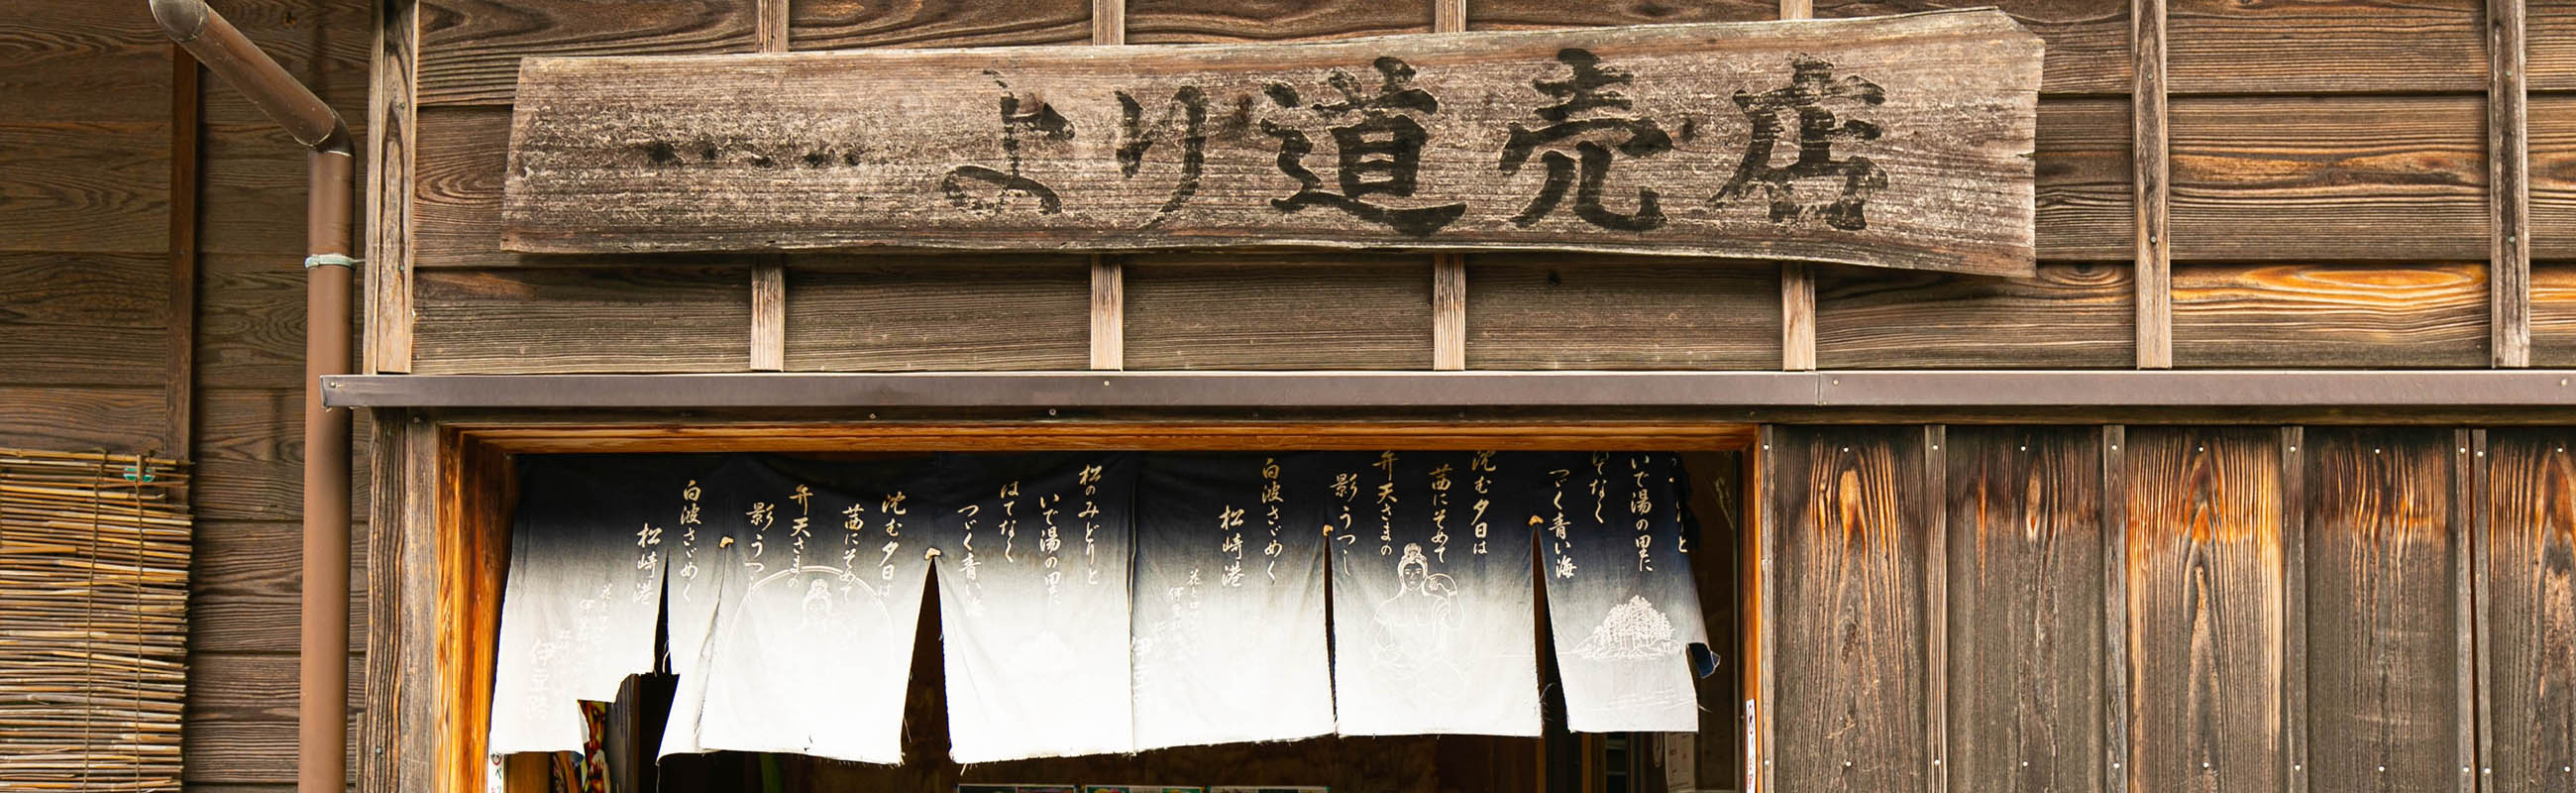 より道売店
松のみどりと
いで湯の里に
はてなく
つづく青い海
沈む夕日は
茜にそめて
弁天さまの
影うつ
白波さざめく
松崎港
いで湯の里に
てなく
つづく青い海
沈む夕日は
茜にそめて
弁天さまの
影うつし
白波さざめく
松崎港